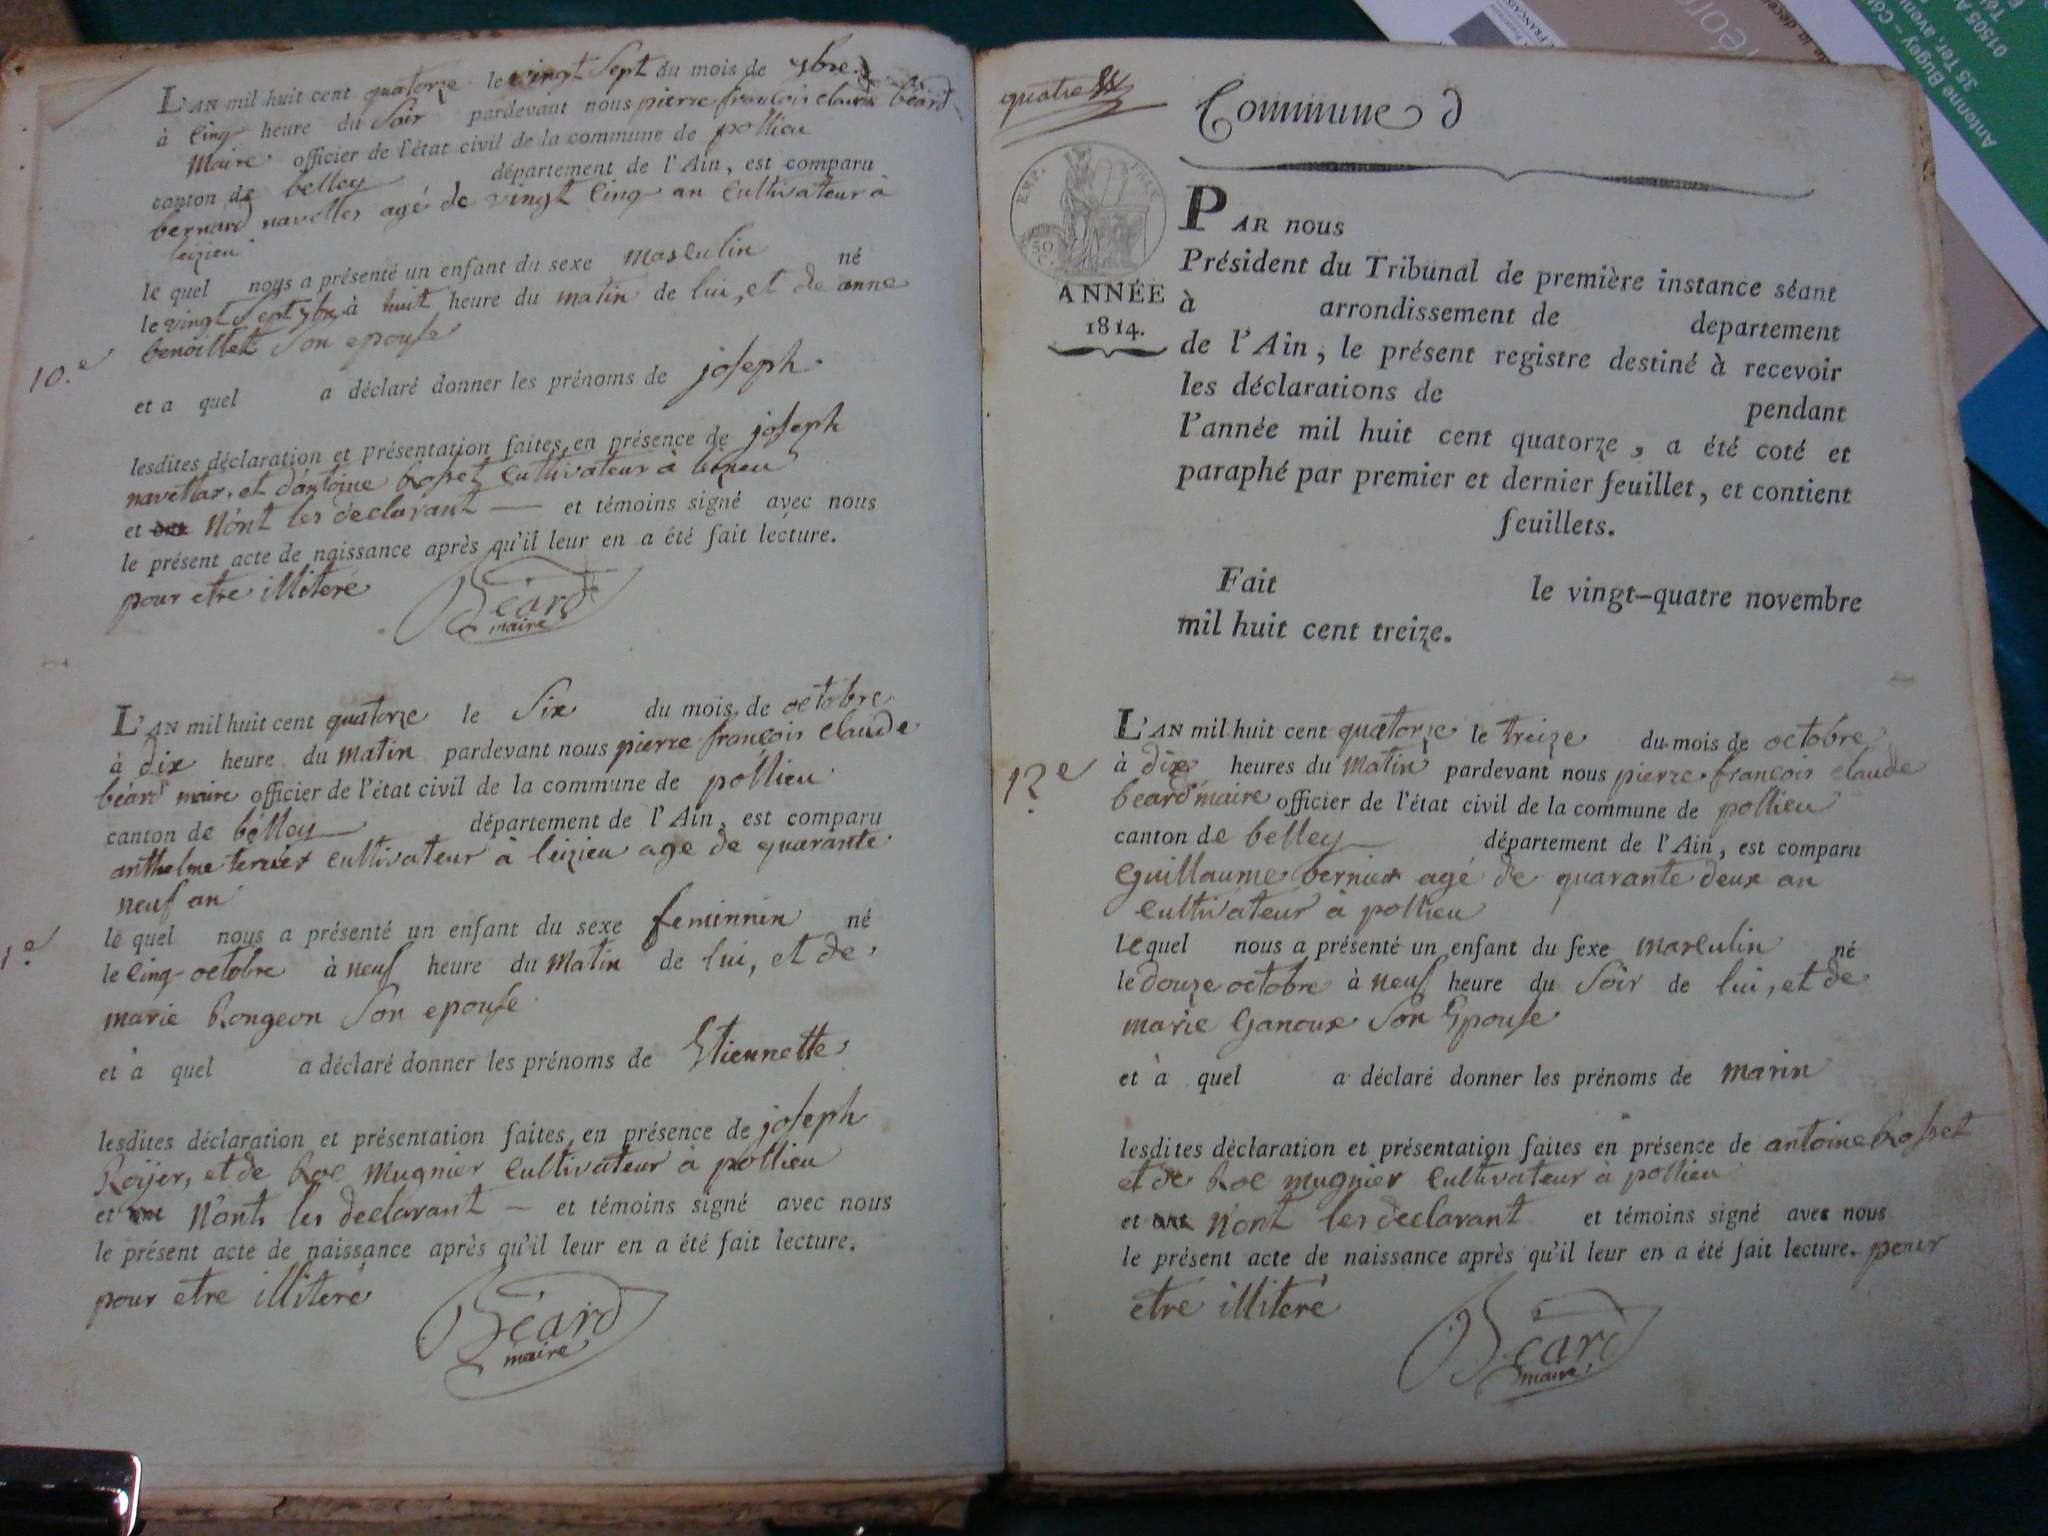 L'AN mil huit cent quatorze le vingt sept du mois de 7bre
à cinq heure du soir pardevant nous pierre françois claude béard
Maire officier de l'état civil de la commune de pollieu
canton de belley département de l'Ain, est comparu
bernard navettes agé de vingt cinq an cultivateur à
leizieu
le quel nous a présenté un enfant du sexe masculin né
le vingt sept 7bre à huit heure du matin de lui, et de anne
benoillet son epouse
10.e
et a quel a déclaré donner les prénoms de joseph
lesdites déclaration et présentation faites en présence de joseph
navettar, et d'antoine Rosset cultivateur à leizieu
et ont N'ont les declarant — et témoins signé avec nous
le présent acte de naissance après qu'il leur en a été fait lecture.
pour etre illiteré
Béard
maire
L'AN mil huit cent quatorze le six du mois de octobre
à dix heure du matin pardevant nous pierre françois claude
béard maire officier de l'état civil de la commune de pollieu
canton de belley département de l'Ain, est comparu
anthelme tervier cultivateur à leizieu age de quarante
neuf an
1.e
le quel nous a présenté un enfant du sexe feminnin né
le cinq octobre à neuf heure du matin de lui, et de
marie Rongeon son epouse
et à quel a déclaré donner les prénoms de Etiennette
lesdites déclaration et présentation faites en présence de joseph
Roijer, et de Roc Mugnier cultivateur à pollieu
et ont N'ont les declarant — et témoins signé avec nous
le présent acte de naissance après qu'il leur en a été fait lecture.
pour etre illiteré
Béard
maire
quatre
Commune d
EMP. FRAN
50
C.
ANNÉE
1814.
PAR nous
Président du Tribunal de première instance séant
à arrondissement de departement
de l'Ain, le présent registre destiné à recevoir
les déclarations de pendant
l'année mil huit cent quatorze, a été coté et
paraphé par premier et dernier feuillet, et contient
feuillets.
Fait le vingt-quatre novembre
mil huit cent treize.
12.e
L'AN mil huit cent quatorze le treize du mois de octobre
à dix heures du matin pardevant nous pierre françois claude
beard maire officier de l'état civil de la commune de pollieu
canton de belley département de l'Ain, est comparu
Guillaume bernier agé de quarante deux an
cultivateur à pollieu
Le quel nous a présenté un enfant du sexe masculin né
le douze octobre à neuf heure du soir de lui, et de
marie Ganoux son Epouse
et à quel a déclaré donner les prénoms de marin
lesdites déclaration et présentation faites en présence de antoine Rosset
et de Roc mugnier cultivateur à pollieu
et ont N'ont les declarant et témoins signé avec nous
le présent acte de naissance après qu'il leur en a été fait lecture. pour
etre illiteré
Béard
maire
Antenne Bugey – Cô
35 Ter, aven
01505 A